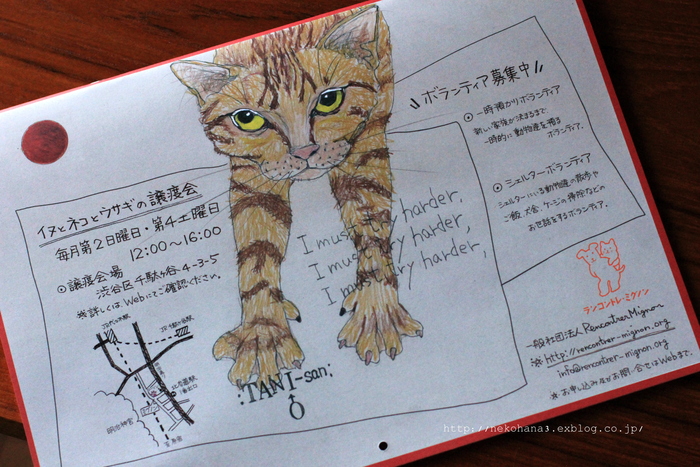 イヌとネコとウサギの譲渡会
毎月第2日曜日・第4土曜日
12:00～16:00
◎譲渡会場
渋谷区千駄ヶ谷4-3-5
※詳しくは、Webにてご確認ください。
明治神宮
I must try harder,
I must try harder,
I must try harder,
:TANI-san:
♂
\\ボランティア募集中//
◎一時預かりボランティア
新しい家族が決まるまで
一時的に動物達を預る
ボランティア。
◎シェルターボランティア
シェルターにいる動物達の散歩や
ご飯、犬舎、ケージの掃除などの
お世話をするボランティア。
ランコントレ・ミグノン
一般社団法人 Rencontrer Mignon
※ http://rencontrer-mignon.org
info@rencontrer-mignon.org
※お申し込み及びお問い合せはWebまで。
http://nekohana3.exblog.co.jp/